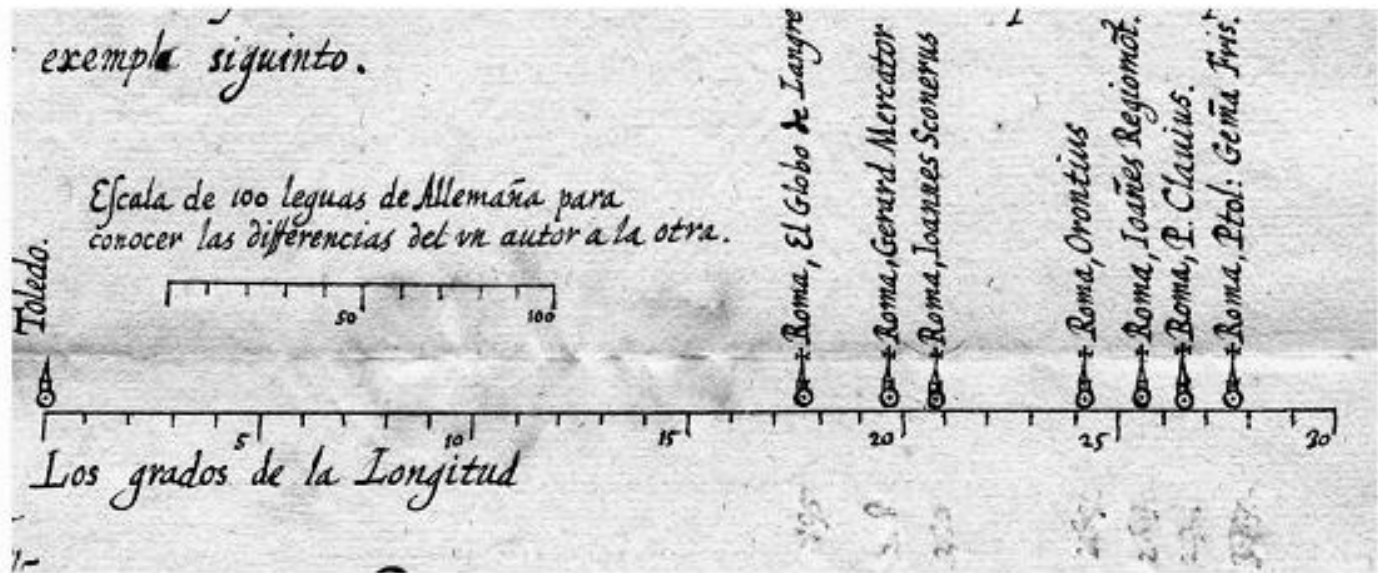 exemple siguinto.
Escala de 100 leguas de Allemaña para
conocer las differencias del vn autor a la otra.
50 100
Toledo.
Roma, El Globo de Langre
Roma, Gerard Mercator
Roma, Ioannes Sconerus
Roma, Orontius
Roma, Ioañes Regiomot.
Roma, P. Clauius.
Roma, Ptol: Gem̃a Fris.
5 10 15 20 25 30
Los grados de la Longitud